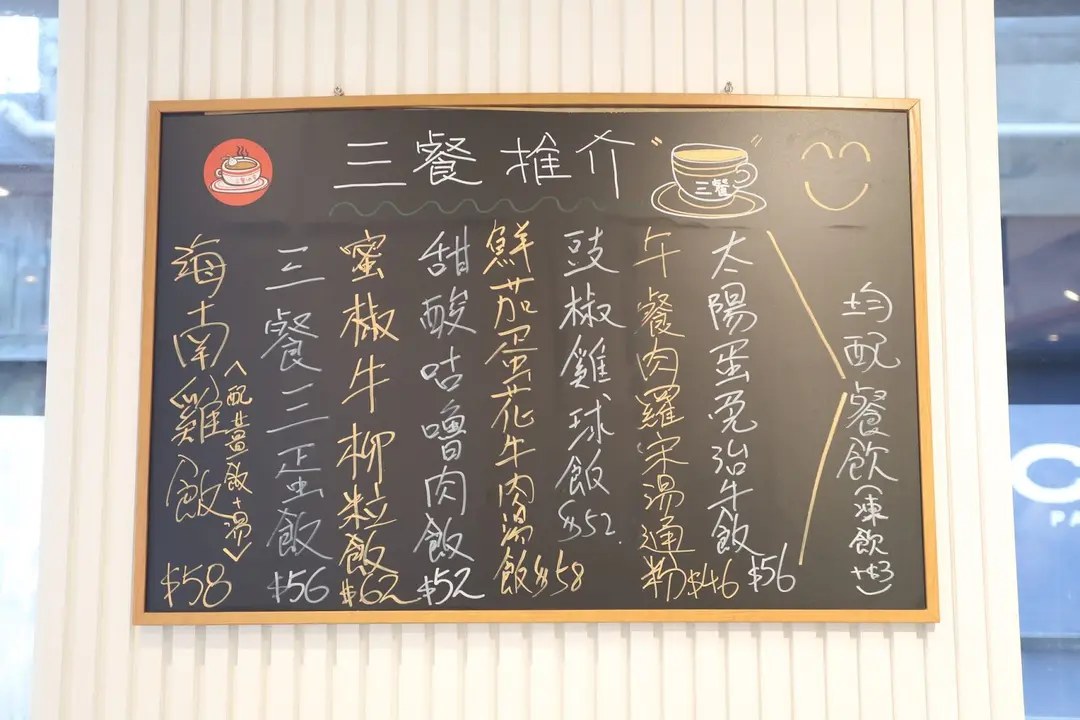 三餐推介
三餐
海南雞飯 $58
<配薑飯+湯>
三餐三蛋飯 $56
蜜椒牛柳粒飯 $62
甜酸咕嚕肉飯 $52
鮮茄蛋花牛肉湯飯 $58
豉椒雞球飯 $52.
午餐肉羅宋湯通粉 $46
太陽蛋免治牛飯 $56
均配餐飲(凍飲+$3)